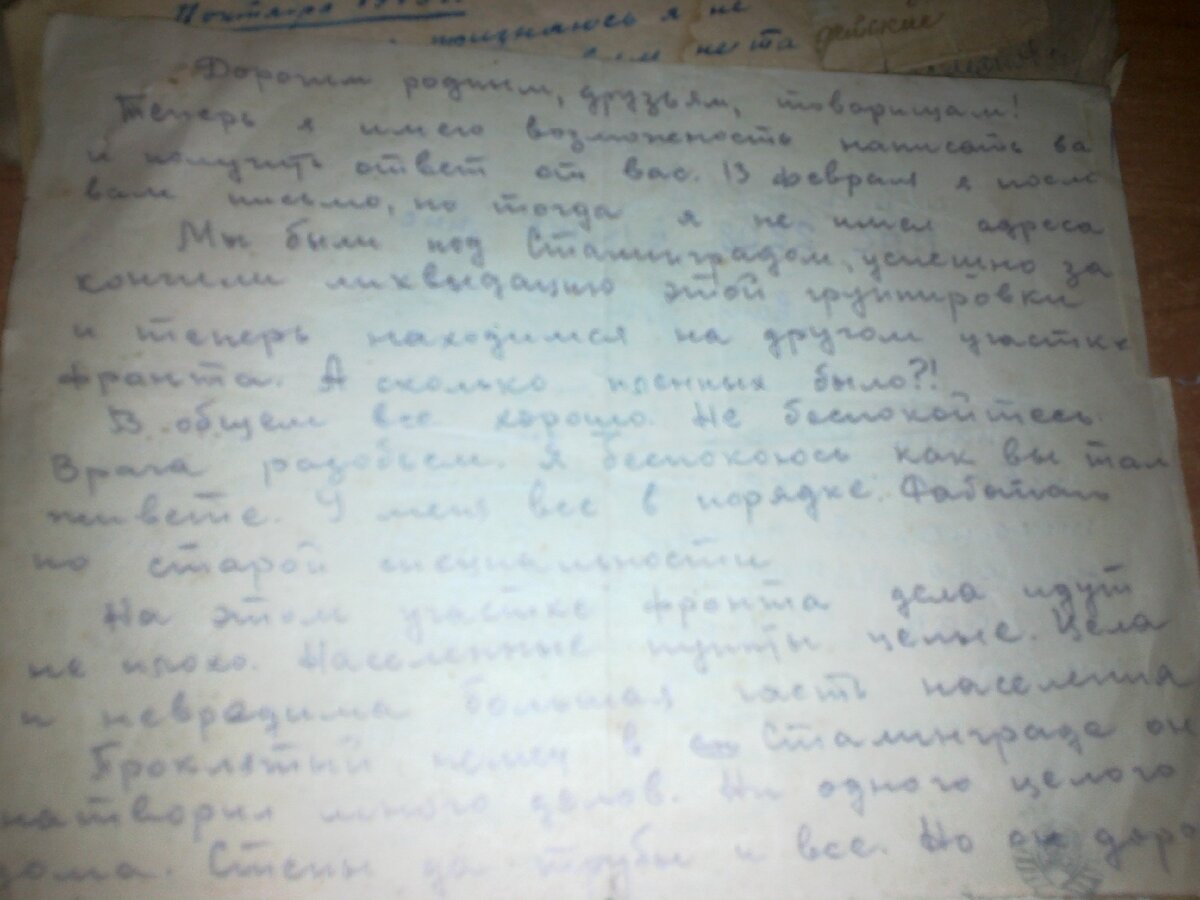 тоизняюсь я не
не та
детские
Дорогим родным, друзьям, товарищам!
Теперь я имею возможность написать ва
и получить ответ от вас. 13 февраля я посл
вам письмо, но тогда я не имел адреса
Мы были под Сталинградом, успешно за
кончили ликвидацию этой группировки
и теперь находимся на другом участке
фронта. А сколько пленных было?!
В общем все хорошо. Не беспокойтесь.
Врага разобьем. Я беспокоюсь как вы там
живете. У меня все в порядке. Работаю
по старой специальности
На этом участке фронта дела идут
не плохо. Населенные пункты целые. Цела
и невредима большая часть населения
Проклятый немец в Сталинграде он
натворил много делов. Ни одного целого
дома. Стены да трубы и все. Но он доро